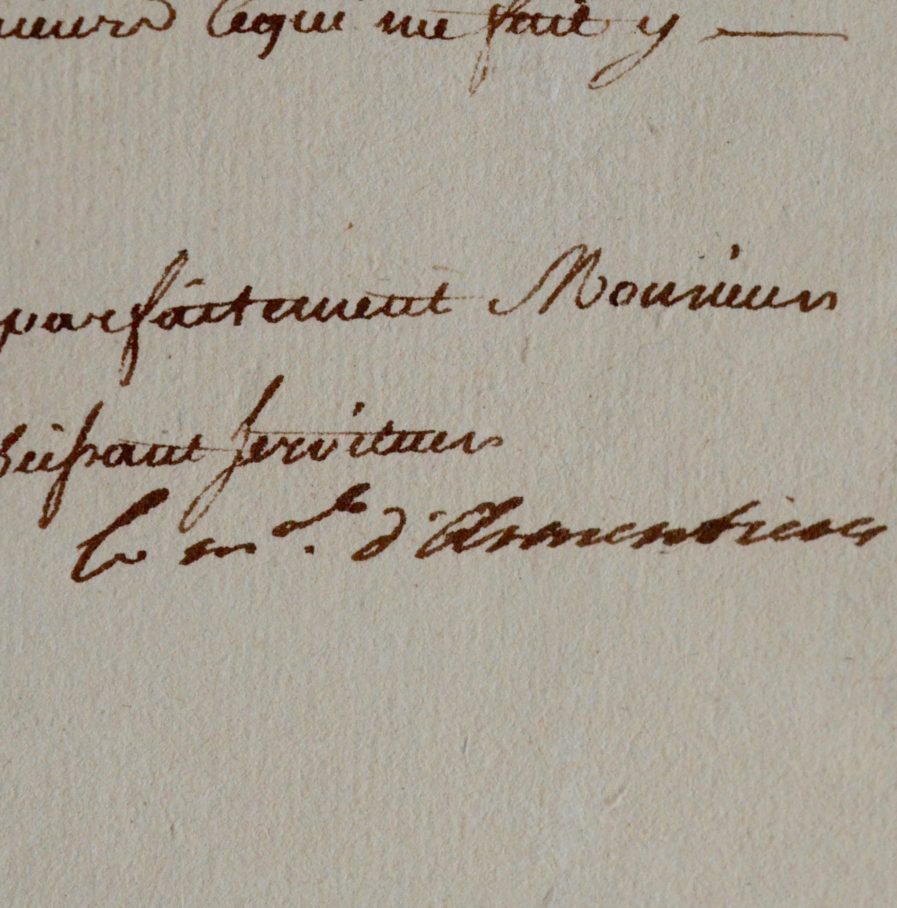 lequi me fait y —
parfaitement Monsieur
béissant serviteur
le m.al d'Armentieres